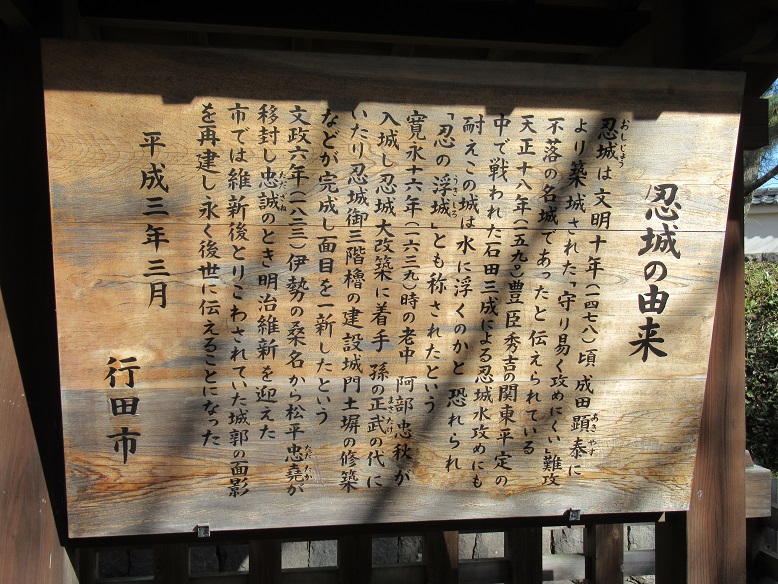 忍城の由来
忍城は文明十年(一四七八)頃、成田顕泰に
より築城された「守り易く攻めにくい」難攻
不落の名城であったと伝えられている
天正十八年(一五九〇)豊臣秀吉の関東平定の
中で戦われた石田三成による忍城水攻めにも
耐えこの城は水に浮くのかと恐れられ
「忍の浮城」とも称されたという
寛永十六年(一六三九)時の老中阿部忠秋が
入城し忍城大改築に着手 孫の正武の代に
いたり忍城御三階櫓の建設城門土塀の修築
などが完成し面目を一新したという
文政六年(一八二三)伊勢の桑名から松平忠堯が
移封し忠誠のとき明治維新を迎えた
市では維新後とりこわされていた城郭の面影
を再建し永く後世に伝えることになった
平成三年三月
行田市